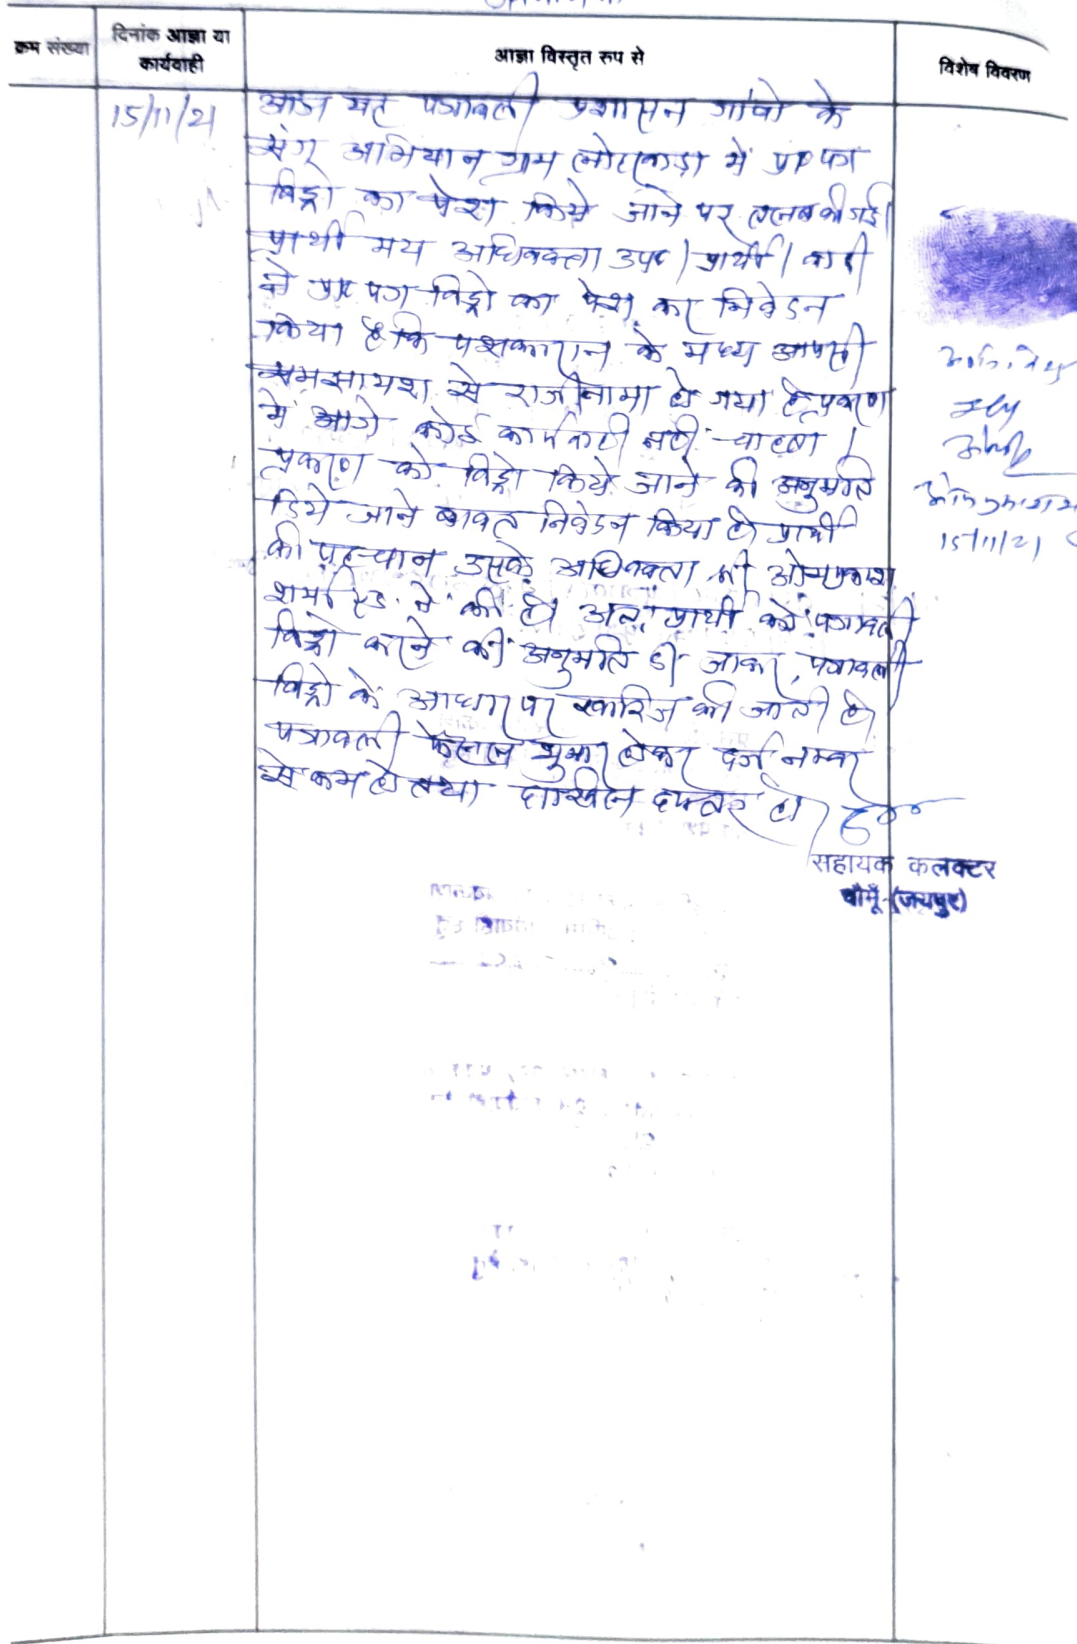 क्रम संख्या
दिनांक आज्ञा या
कार्यवाही
आज्ञा विस्तृत रुप से
विशेष विवरण
15/11/21
आज यह पत्रावली प्रशासन गांवो के
संग अभियान ग्राम में प्रा० पत्र
विड्रो का पेश किये जाने पर तलब की गई।
प्रार्थी मय अधिवक्ता उप०। प्रार्थी/वादी
ने प्रा० पत्र विड्रो का पेश कर निवेदन
किया है कि पक्षकारान के मध्य आपसी
समझायश से राजीनामा हो गया है, प्रकरण
मे आगे कोई कार्यवाही नही चाहता।
प्रकरण को विड्रो किये जाने की अनुमति
दिये जाने बाबत निवेदन किया है। प्रार्थी
की पहचान उसके अधिवक्ता श्री ओमप्रकाश
शर्मा एड. ने की है। अतः प्रार्थी को पत्रावली
विड्रो करने की अनुमति दी जाकर, पत्रावली
विड्रो के आधार पर खारिज की जाती है।
पत्रावली फैसल शुमार होकर दर्ज नम्बर
से कम हो तथा दाखिल दफ्तर हो।
15/11/21
सहायक कलक्टर
चौमूँ (जयपुर)